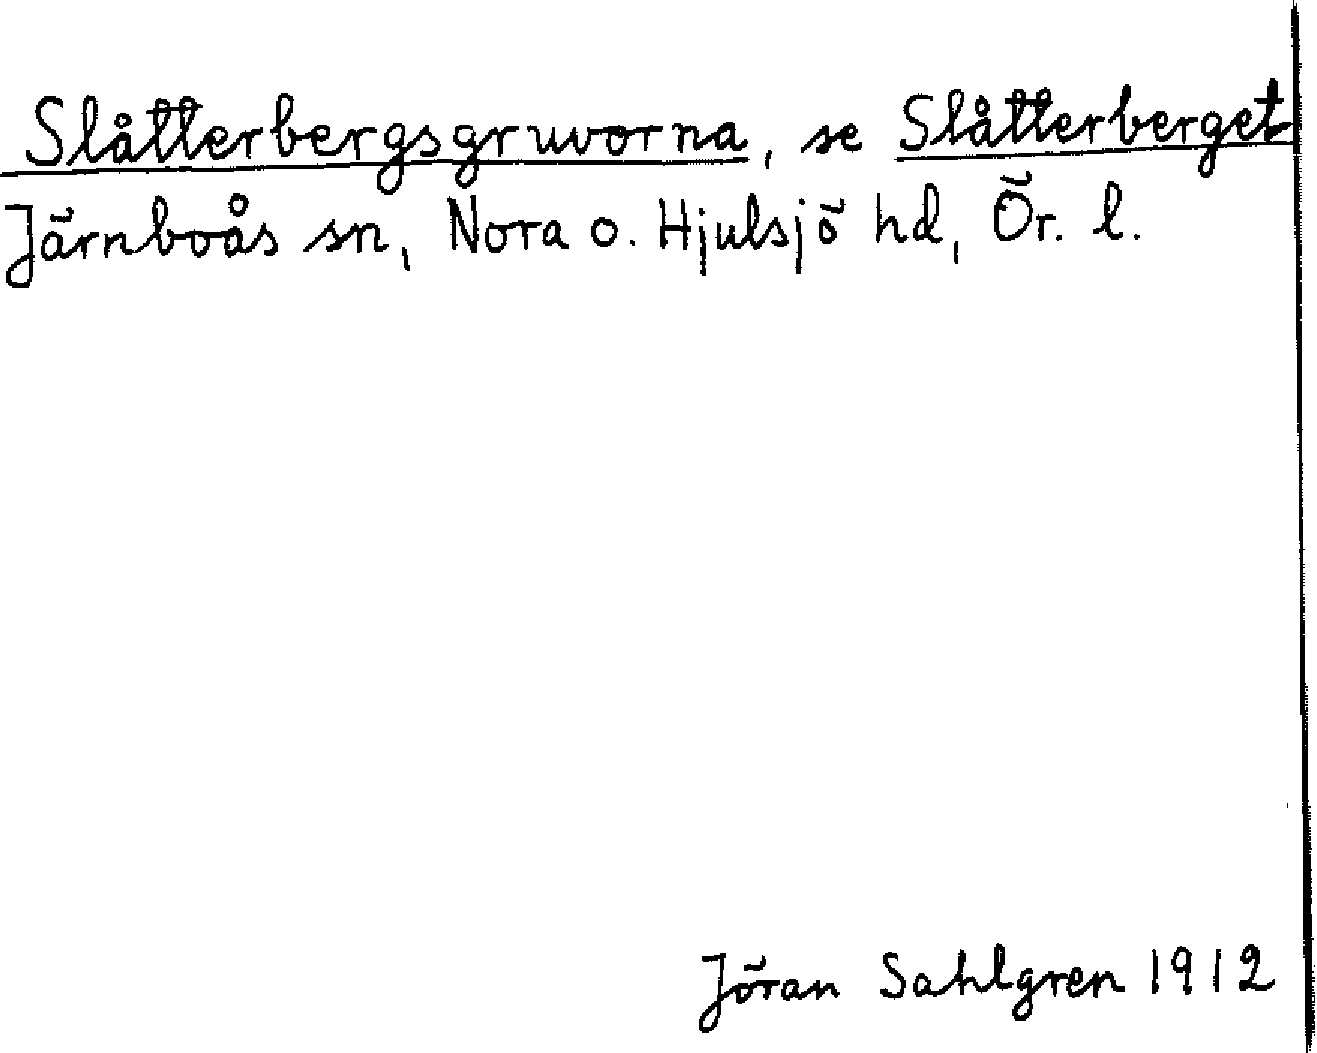 Slåtterbergsgruvorna, se Slåtterberget
Järnboås sn, Nora o. Hjulsjö hd, Ör. l.
Jöran Sahlgren 1912